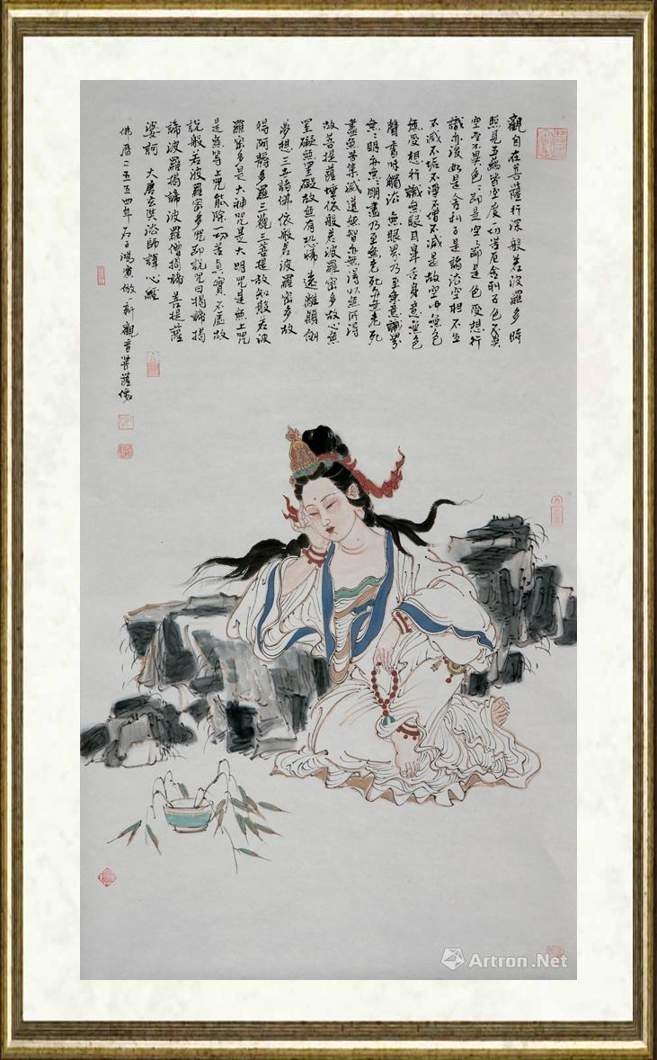 觀自在菩薩行深般若波羅多時
照見五蘊皆空度一切苦厄舍利子色不異
空空不異色色即是空空即是色受想行
識亦復如是舍利子是諸法空相不生
不滅不垢不淨不增不減是故空中無色
無受想行識無眼耳鼻舌身意無色
聲香味觸法無眼界乃至無意識界
無無明亦無無明盡乃至無老死亦無老死
盡無苦集滅道無智亦無得以無所得
故菩提薩埵依般若波羅蜜多故心無
罣礙無罣礙故無有恐怖遠離顛倒
夢想三世諸佛依般若波羅蜜多故
得阿耨多羅三藐三菩提故知般若波
羅蜜多是大神咒是大明咒是無上咒
是無等等上咒能除一切苦真實不虛故
說般若波羅蜜多咒即說咒曰揭諦揭
諦波羅揭諦波羅僧揭諦菩提薩
婆訶 大唐玄奘法師譯心經
佛曆二五五四年 觀音菩薩像
Artron.Net